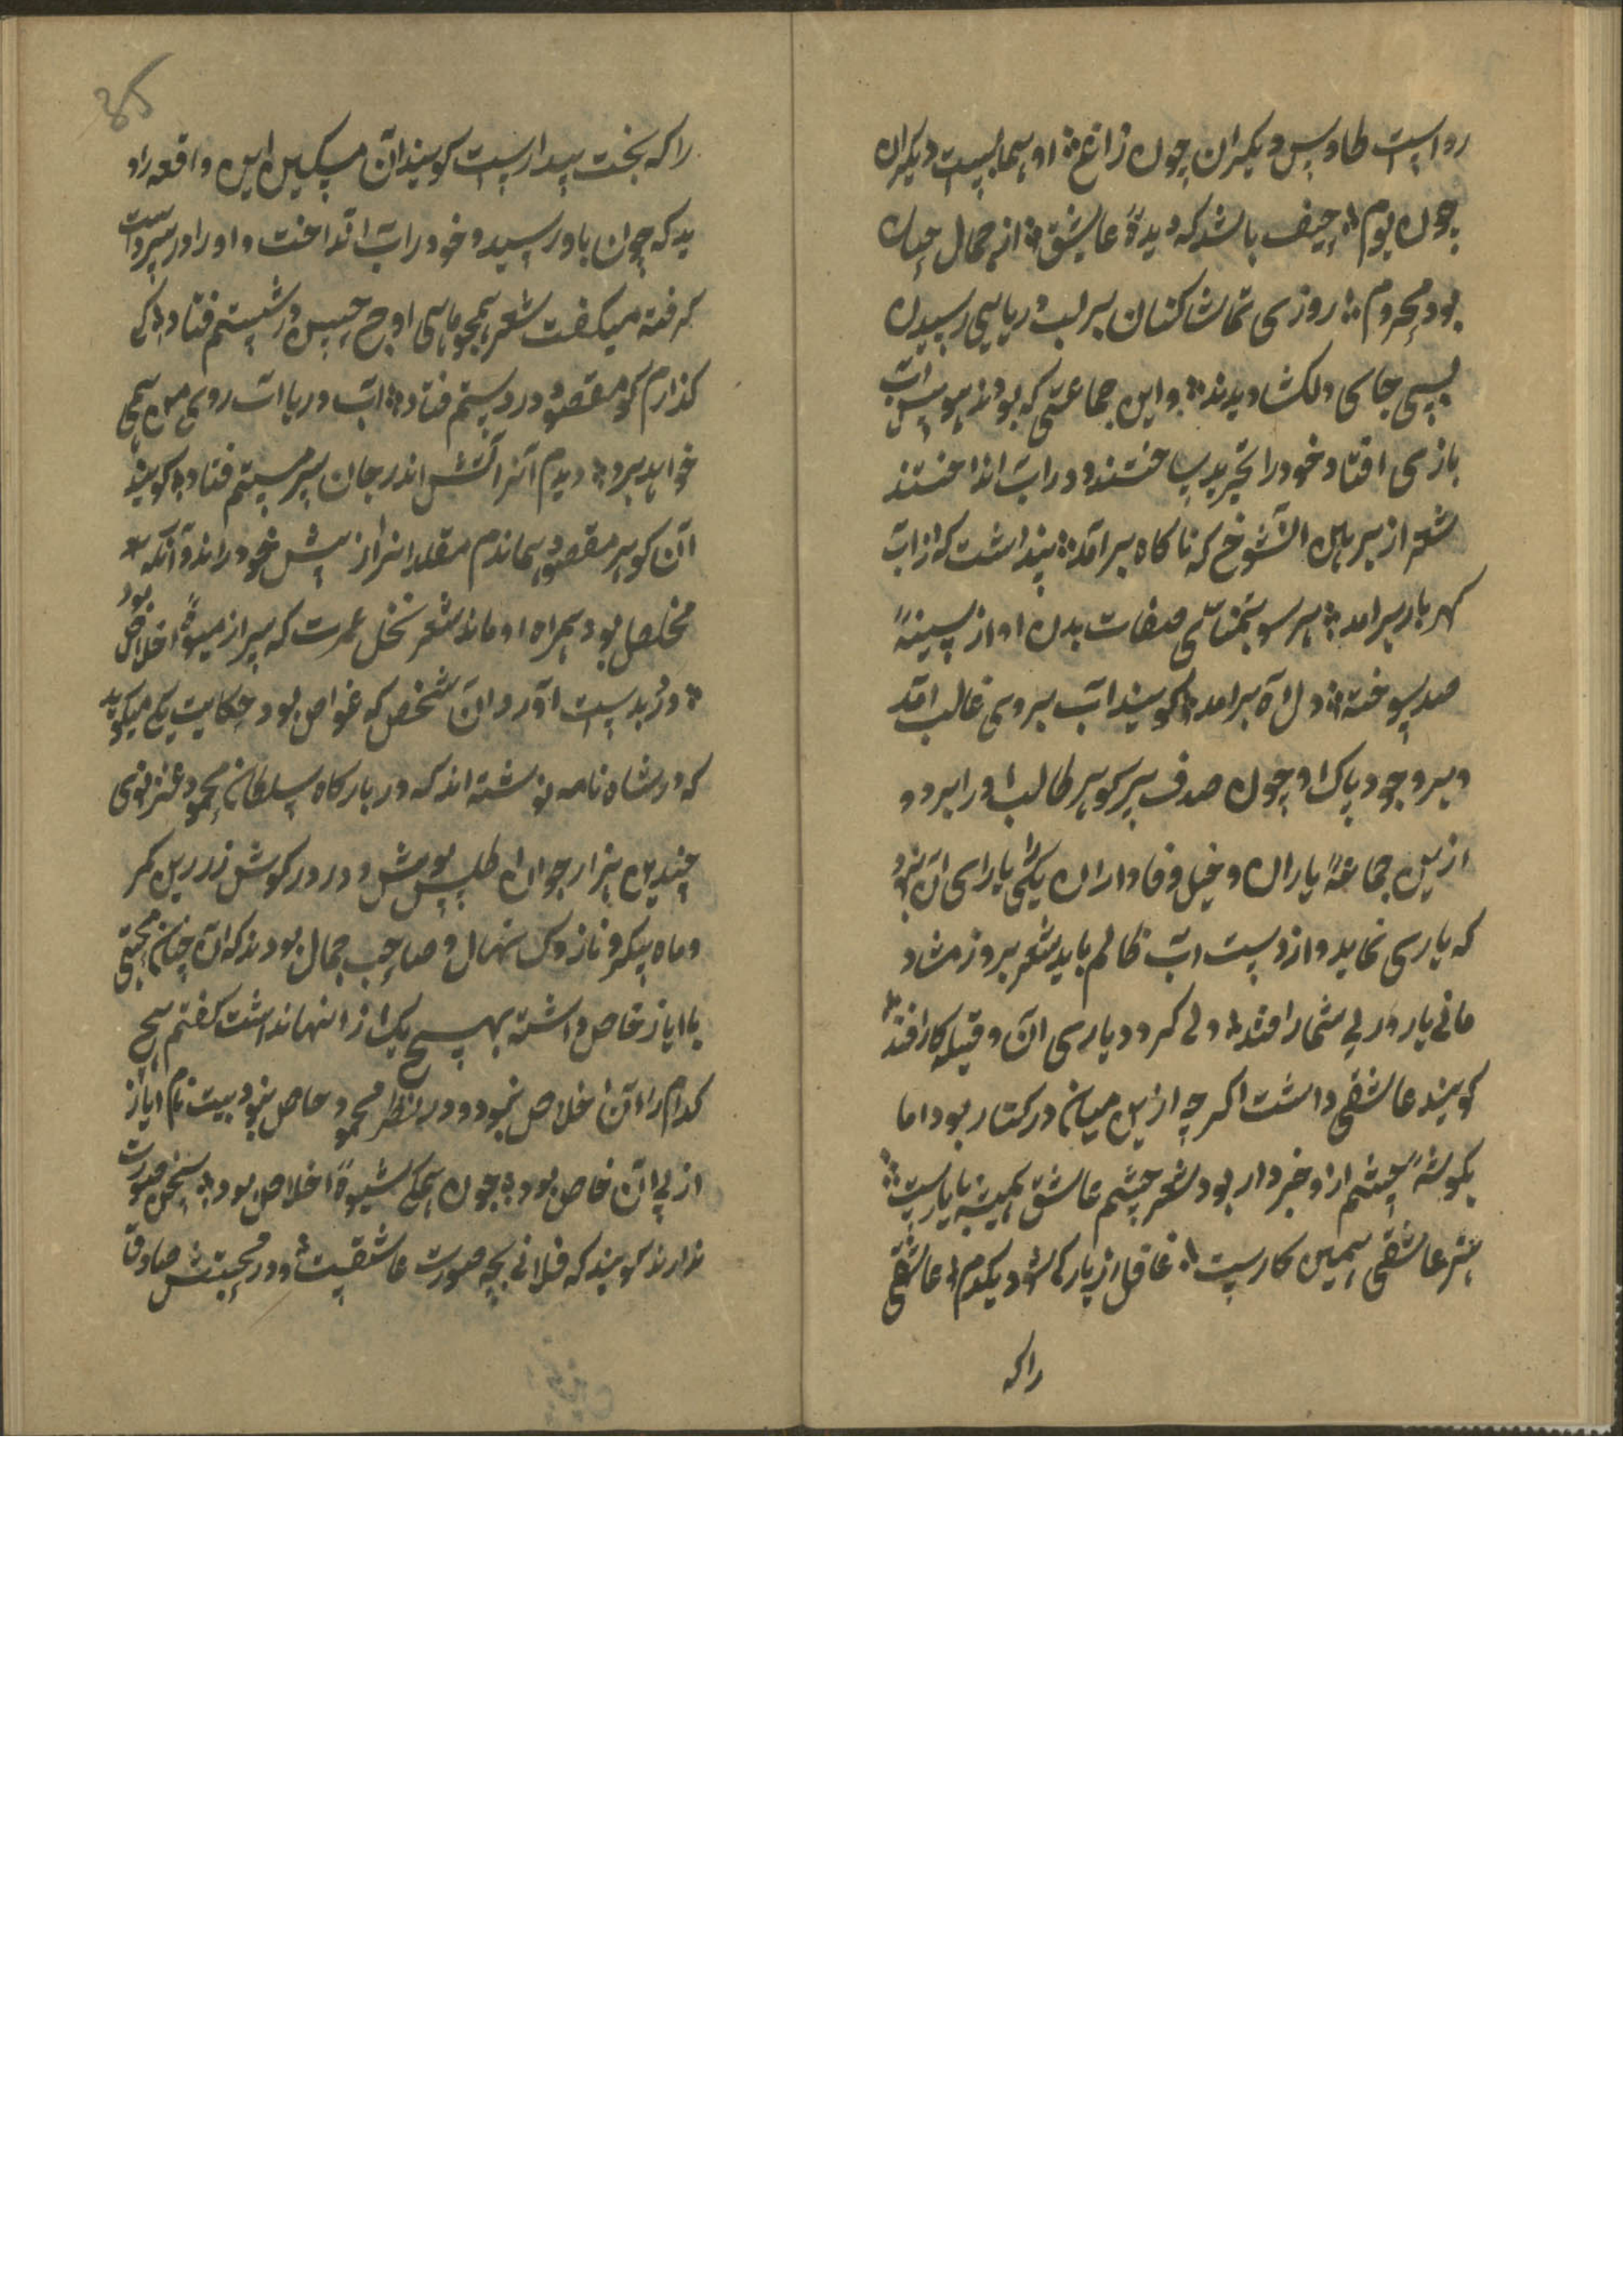 رواست طاوس دیکران چون زاغ او هماییست دیکران
چون بوم حیف باشد که دیدهٔ عاشق از جمال چنان
بود محروم روزی تماشا کنان بر لب دریایی رسیدن
بسی جای دلکشا دیدند واین جماعتی که بودند هوس آب
بازی افتاد خود را تجرید ساختند و در آب انداختند
شعر از پیرهن آن شوخ که ناکاه برآمد پنداشت که از آب
کهر بار برآمد هر سو بتمنای صفات بدن او از سینهٔ
صد سوخته دل آه برآمد کویند آب بروی غالب آمد
و بر وجود پاک او چون صدف پر کوهر طالب او را برد و
ازین جماعهٔ یاران و خیل وفاداران یکی را یارای آن نبود
که یاری نماید و از دست آب ظالم باید شعر بروز شاد
مانی یار و بی شمار افتد ولی کم بود یاری آن وقتیکه کار افتد
کویند عاشقی داشت اکرچه ازین میان در کنار بود اما
بکوشهٔ چشم ازو خبردار بود شعر چشم عاشق همیشه با یارست
هنر عاشقی همین کارست غافل از یار کی شود یکدم عاشقی
راکه
راکه بخت بیدارست کویند آن مسکین این واقعه را د
ید که چون باو رسید و خود را آب انداخت و او را در سر دست
کرفته میکفت شعر همچو ماهی اوج حسن در شستم فتاد کی
کذارم کو مقصود در دستم فتاد آب دریا آب روی من همی
خواهد برد دیدم آنرا آتش اندر جان پر مستم فتاد کویند
آن کوهر مقصود بماندم مقلد انرا از پیش خود راند و آنکه
مخلص بود همراه او ماند شعر نخل عمرت که پر از میوهٔ اخلاص بود
در بدست آورد آن شخص که غواص بود حکایت یکی میکوید
که در شاه نامه نوشته اند که در بارکاه سلطان محمود غزنوی
چندین هزار جوان اطلس پوش و در در کوش زرین کمر
و ماه پیکر و نازک نهال و صاحب جمال بودند که آن چنان محبتی
با ایاز خاص داشته بهیچ یک از انها نداشت کفتم هیچ
کدام را آن خلاص نبود و در نظر محمود خاص نبود بیت نام ایاز
از پی آن خاص بود چون همکی شیوهٔ اخلاص بود سخن صورت
ندارند کویند که فلانی بچه صورت عاشقیت و در محبتش صادق